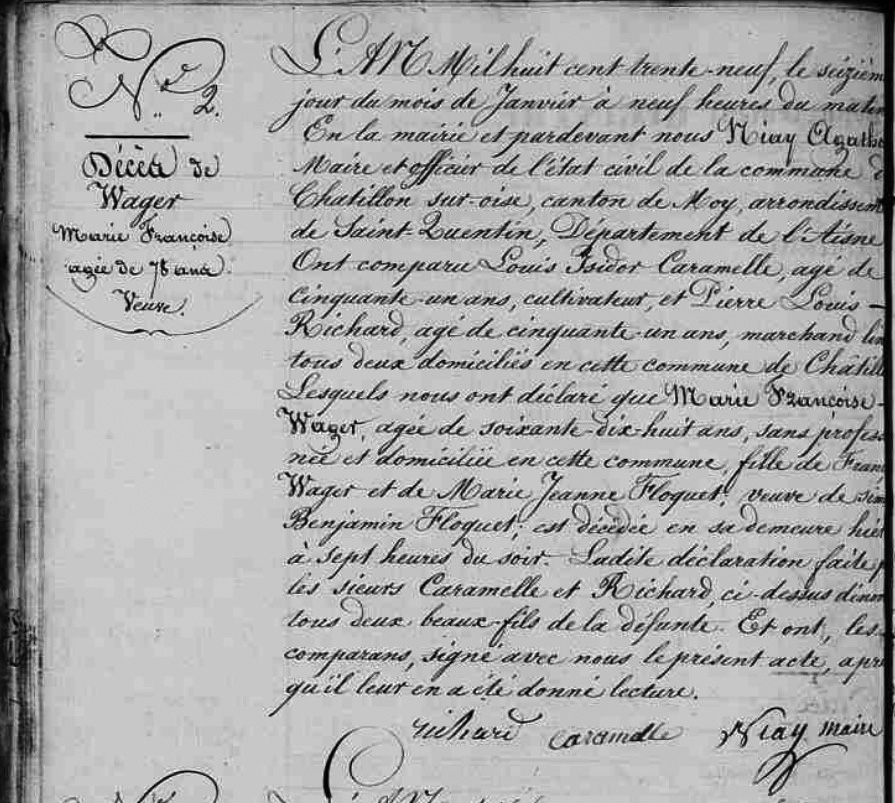 N.° 2.
Décès de
Wager
Marie Françoise
agée de 78 ans
Veuve.
L'AN Mil huit cent trente-neuf, le seizièm
jour du mois de Janvier à neuf heures du matin
En la mairie et pardevant nous Niay Agathe
Maire et officier de l'état civil de la commune d
Chatillon sur-oise, canton de Moy, arrondissem
de Saint-Quentin, Département de l'Aisne
Ont comparu Louis Isidor Caramelle, agé de
Cinquante-un ans, cultivateur, et Pierre Louis -
Richard, agé de cinquante-un ans, marchand lin
tous deux domiciliés en cette commune de Châtill
Lesquels nous ont déclaré que Marie Françoise -
Wager, agée de soixante-dix-huit ans, sans profess
née et domiciliée en cette commune, fille de Franç
Wager et de Marie Jeanne Floquet, veuve de
Benjamin Floquet; est décédée en sa demeure hier
à sept heures du soir. Ladite déclaration faite p
les sieurs Caramelle et Richard, ci-dessus dénom
tous deux beaux-fils de la défunte. Et ont, les
comparans, signé avec nous le présent acte, apr
qu'il leur en a été donné lecture.
richard caramelle Niay maire